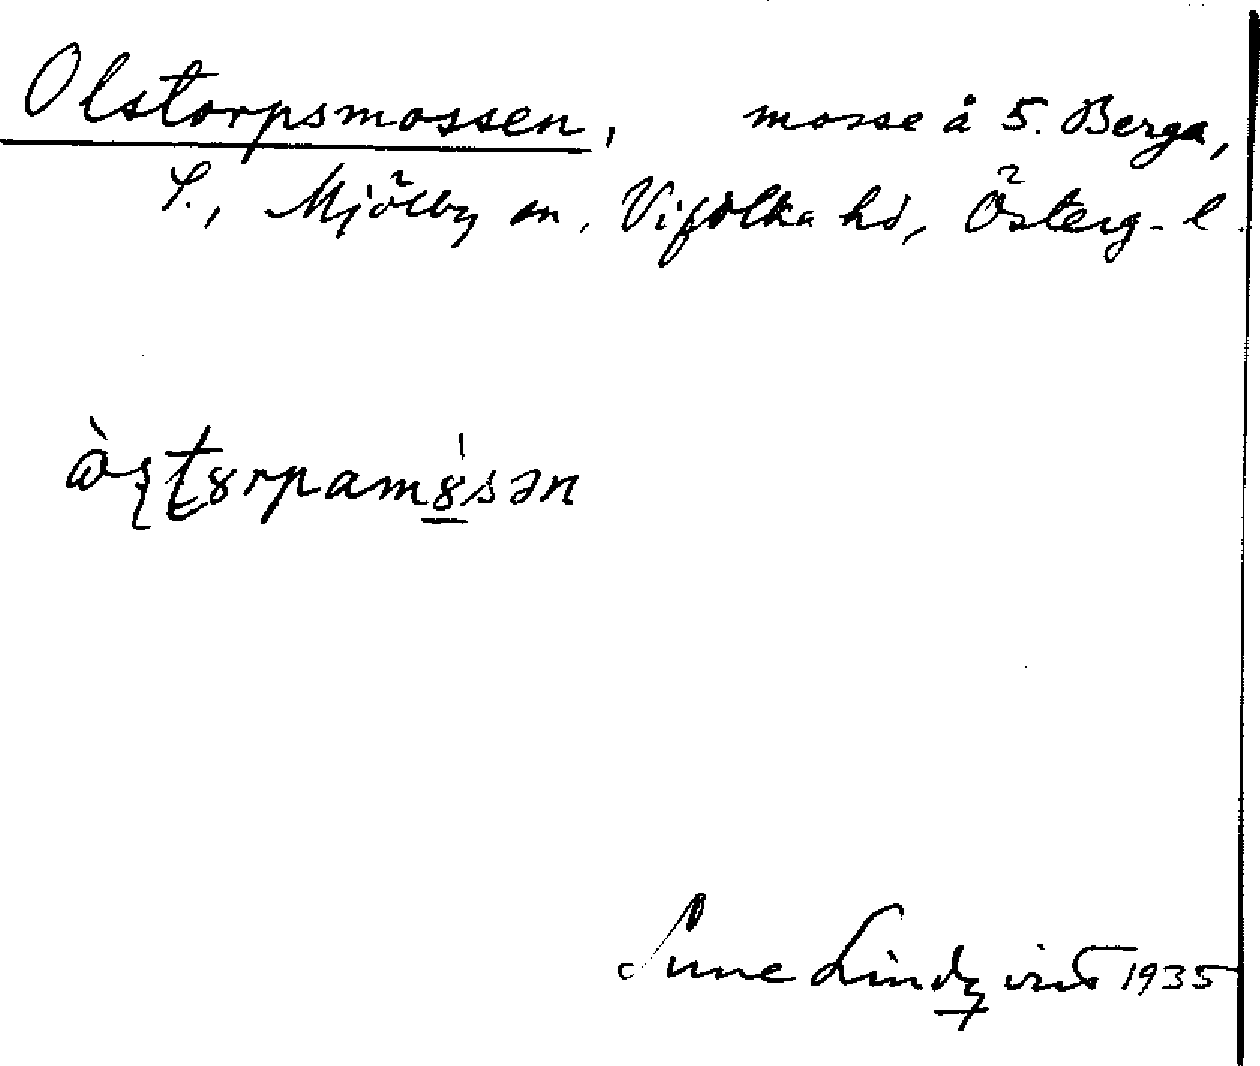 Olstorpsmossen, mosse å 5. Berga,
S., Mjölby sn, Vifolka hd, Österg. l.
Sune Lindqvist 1935